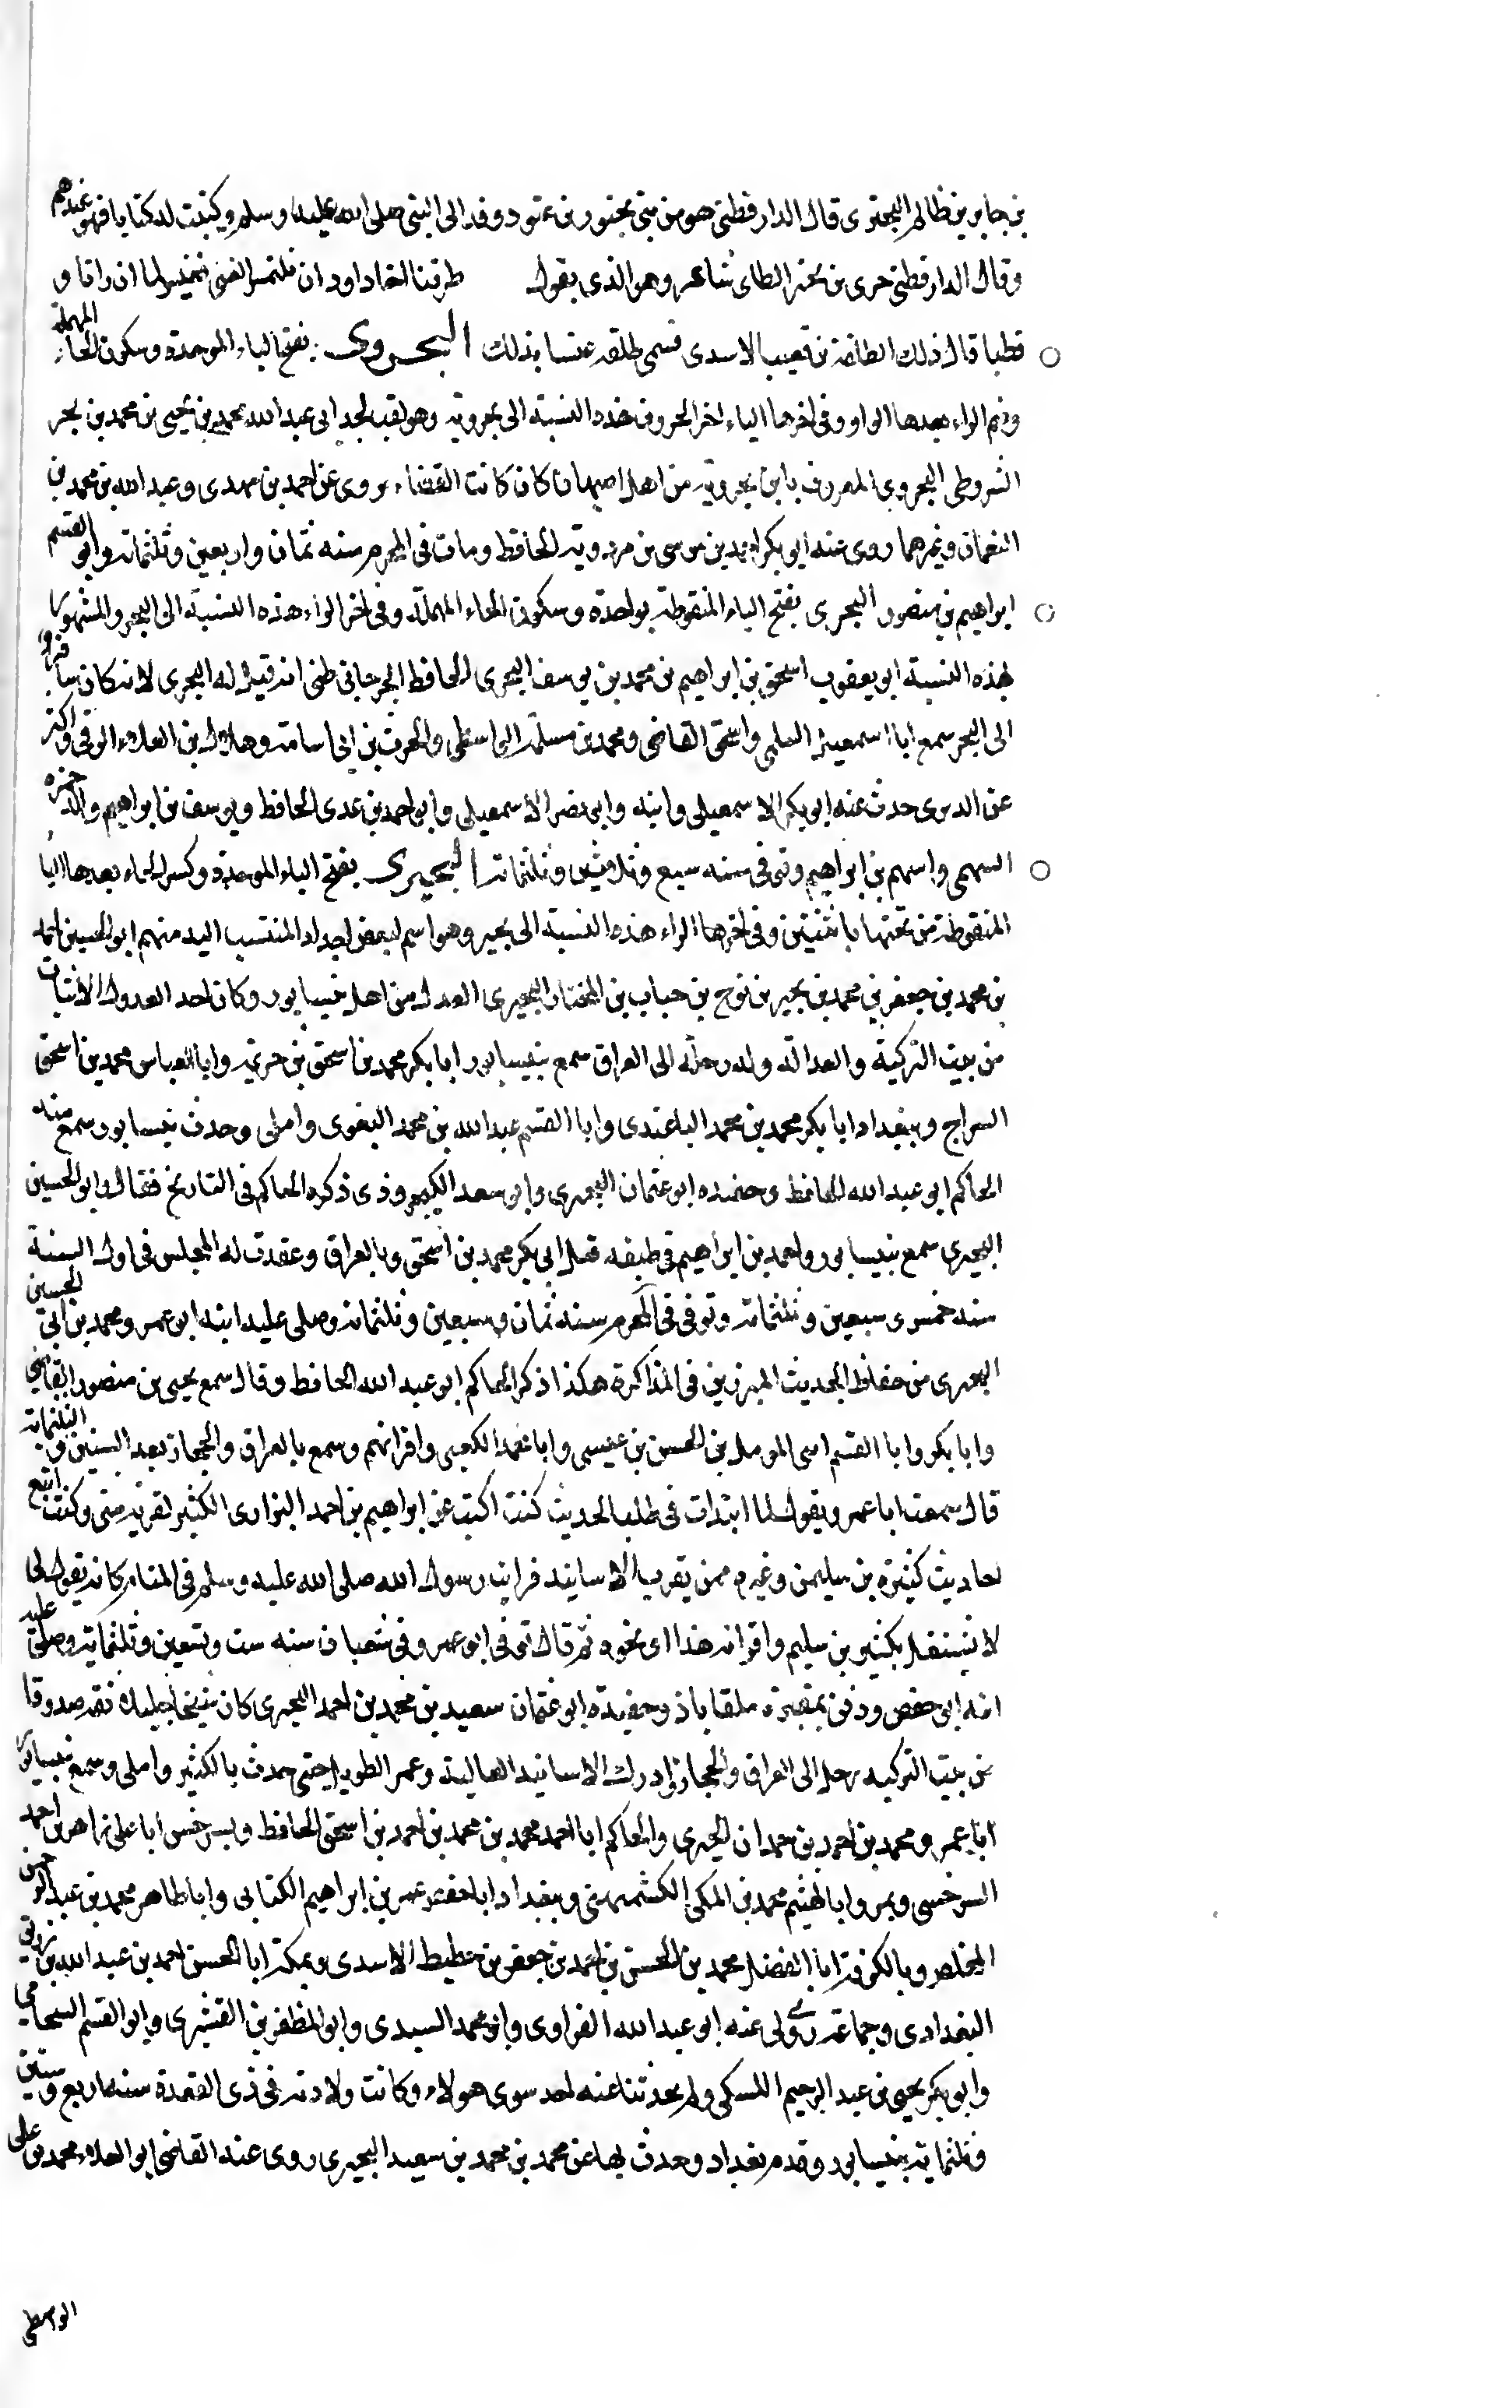 بن جابر بن ظالم البحتری قال الدارقطنی هو من بنی بحتر بن عتود وفد الی النبی صلی الله علیه وسلم وکتبت له کتابا فهو عندهم
وقال الدارقطنی حری بن بحتر الطائ شاعر وهو الذی یقول طرقنا
قال ذلک الاسدی فسمی بذلک البحروی بفتح الباء الموحدة وسکون الحاء المهملة
وضم الراء بعدها الواو وفی اخرها الیاء اخر الحروف هذه النسبة الی بحرویه وهو لقب لجد ابی عبد الله محمد بن یحیی بن محمد بن بحر
الشروطی البحروی المعروف بابن بحرویه من اهل اصبهان کان کاتب القضاء یروی عن احمد بن مهدی وعبد الله بن محمد بن
النعمان وغیرهما روی عنه ابو بکر احمد بن موسی بن مردویه الحافظ ومات فی المحرم سنه ثمان واربعین وثلثمائه وابو القسم
ابراهیم بن منصور البحری بفتح الباء المنقوطه بواحدة وسکون الحاء المهملة وفی اخر الراء هذه النسبة الی البحر والمشهور
بهذه النسبة ابو یعقوب اسحق بن ابراهیم بن محمد بن یوسف البحری الحافظ الجرجانی ظنی انه قیل له البحری لانه کان سافر
الی البحر سمع ابا اسمعیل السلمی واسحق القاضی ومحمد بن مسلمة الواسطی والحرث بن ابی اسامة وهلال بن العلاء الرقی واکثر
عن الدبری حدث عنه ابو بکر الاسمعیلی وابنه وابی نصر الاسمعیلی وابو احمد بن عدی الحافظ ویوسف بن ابراهیم والد حمزه
السهمی واسهم بن ابراهیم وتوفی سنه سبع وثلاثین وثلثمائه البحیری بفتح الباء الموحدة وکسر الحاء بعدها الیا
المنقوطة من تحتها باثنتین وفی اخرها الراء هذه النسبة الی بحیر وهو اسم لبعض اجداد المنتسب الیه منهم ابو الحسین احمد
بن محمد بن جعفر بن محمد بن بحیر بن نوح بن حباب بن المختار البحیری العدل من اهل نیسابور وکان احد العدول الاثبات
من بیت التزکیة والعدالة وله رحله الی العراق سمع بنیسابور ابا بکر محمد بن اسحق بن خزیمه وابا العباس محمد بن اسحق
السراج وببغداد ابا بکر محمد بن محمد الباغندی وابا القسم عبد الله بن محمد البغوی واملی وحدث بنیسابور سمع منه
الحاکم ابو عبد الله الحافظ وحفیده ابو عثمان البحیری وابو سعد الکنجروذی ذکره الحاکم فی التاریخ فقال وابو الحسین
البحیری سمع بنیسابور واحمد بن ابراهیم فی طبقه قبل ابی بکر محمد بن اسحق وبالعراق وعقدت له المجلس فی اول السنة
سنه خمس وسبعین وثلثمائه وتوفی فی المحرم سنه ثمان وسبعین وثلثمائه وصلی علیه ابنه ابو عمرو محمد بن ابی الحسین
البحیری من حفاظ الحدیث المبرزین فی المذاکرة هکذا ذکر الحاکم ابو عبد الله الحافظ وقال سمع یحیی بن منصور القاضی
وابا بکر وابا القسم ابنی المومل بن الحسن بن عیسی وابا محمد الکعبی واقرانهم وسمع بالعراق والحجاز بعد الستین والثلثمائه
قال سمعت ابا عمرو یقول لما ابتدات فی طلب الحدیث کنت اکتب عن ابراهیم بن احمد البزاری الکثیر لقربه منی وکنت اتبع
احادیث کثیرة بن سلیمن وغیره ممن یقرب الاسانید فرایت رسول الله صلی الله علیه وسلم فی المنام کانه یقول لی
لا تشتغل بکثیر بن سلیم واقرانه هذا او نحوه ثم قال توفی ابو عمرو فی شعبان سنه ست وتسعین وثلثمائة وصلی علیه
ابنه ابو حفص ودفن بمقبرة ملقاباذ وحفیده ابو عثمان سعید بن محمد بن احمد البحیری کان شیخا جلیلا ثقه صدوقا
من بیت التزکیه رحل الی العراق والحجاز وادرک الاسانید العالیة وعمر الطویل حتی حدث بالکثیر واملی وسمع بنیسابور
ابا عمرو محمد بن احمد بن حمدان الحیری والحاکم ابا احمد محمد بن محمد بن احمد بن اسحق الحافظ وبسرخس ابا علی زاهر بن احمد
السرخسی وبمرو ابا الهیثم محمد بن المکی الکشمیهنی وببغداد ابا حفص عمر بن ابراهیم الکتانی وابا طاهر محمد بن عبد الرحمن
المخلص وبالکوفة ابا الفضل محمد بن الحسن بن احمد بن جعفر بن حطیط الاسدی وبمکة ابا الحسن احمد بن عبد الله بن رزیق
البغدادی وجماعة روی لی عنه ابو عبد الله الفراوی وابو محمد السیدی وابو المظفر بن القشیری وابو القسم الشحامی
وابو بکر یحیی بن عبد الرحیم اللبیکی ولم یحدثنا عنه احد سوی هولاء وکانت ولادته فی ذی القعدة سنه اربع وستین
وثلثمائة بنیسابور وقدم بغداد وحدث بها عن محمد بن محمد بن سعید البحیری روی عنه القاضی ابو العلاء محمد بن علی
الواسطی